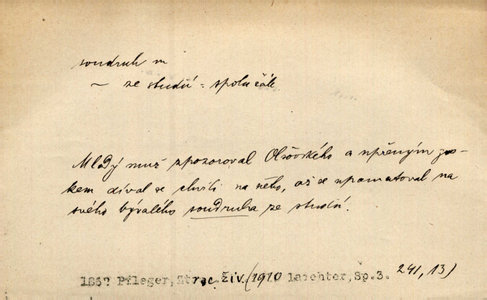 soudruh m
~ ze studií = spolužák
Mladý muž zpozoroval Olšovského a upřeným zra-
kem díval se chvíli na něho, až se upamatoval na
svého bývalého soudruha ze studií.
1862 Pfleger, Ztrac. živ. (1910 Laichter, Sp.3. 241, 13)